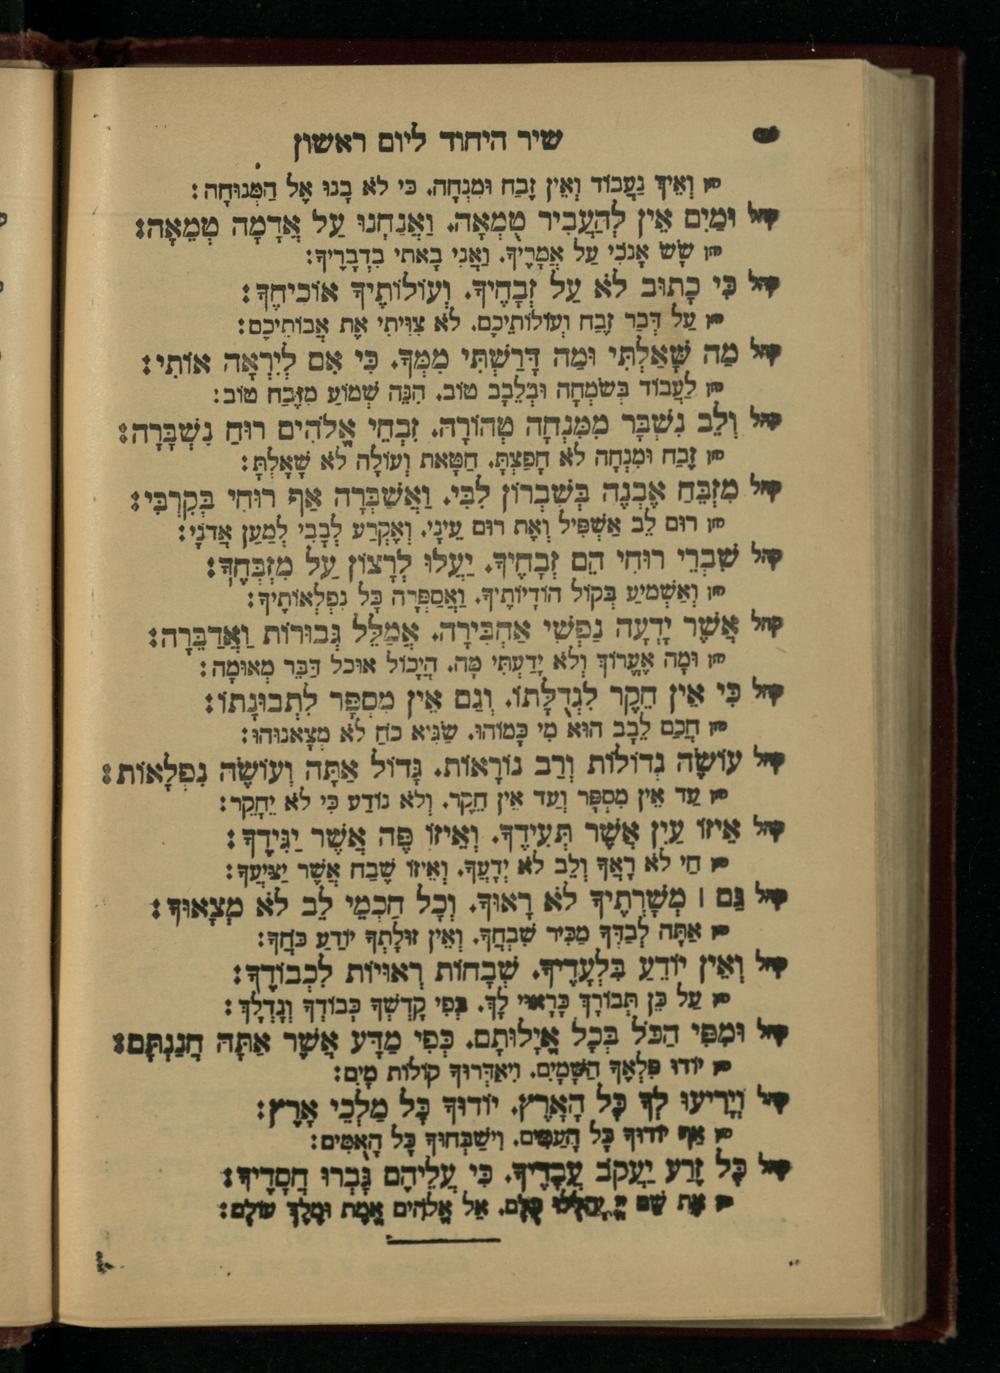 שיר היחוד ליום ראשון
חזן וְאֵיךְ נַעֲבוֹד וְאֵין זֶבַח וּמִנְחָה. כִּי לֹא בָנוּ אֶל הַמְּנוּחָה:
קהל וּמַיִם אֵין לְהַעֲבִיר טֻמְאָה. וַאֲנַחְנוּ עַל אֲדָמָה טְמֵאָה:
חזן שָׂשׂ אָנֹכִי עַל אֲמָרֶיךָ. וַאֲנִי בָאתִי בִדְבָרֶיךָ:
קהל כִּי כָתוּב לֹא עַל זְבָחֶיךָ. וְעוֹלוֹתֶיךָ אוֹכִיחֶךָ:
חזן עַל דְּבַר זֶבַח וְעוֹלוֹתֵיכֶם. לֹא צִוִּיתִי אֶת אֲבוֹתֵיכֶם:
קהל מַה שָּׁאַלְתִּי וּמַה דָּרַשְׁתִּי מִמְּךָ. כִּי אִם לְיִרְאָה אוֹתִי:
חזן לַעֲבוֹד בְּשִׂמְחָה וּבְלֵבָב טוֹב. הִנֵּה שְׁמוֹעַ מִזֶּבַח טוֹב:
קהל וְלֵב נִשְׁבָּר מִמִּנְחָה טְהוֹרָה. זִבְחֵי אֱלֹהִים רוּחַ נִשְׁבָּרָה:
חזן זֶבַח וּמִנְחָה לֹא חָפַצְתָּ. חַטָּאת וְעוֹלָה לֹא שָׁאָלְתָּ:
קהל מִזְבֵּחַ אֶבְנֶה בְּשִׁבְרוֹן לִבִּי. וַאֲשַׁבְּרָה אַף רוּחִי בְּקִרְבִּי:
חזן רוּם לֵב אַשְׁפִּיל וְאֶת רוּם עֵינַי. וְאֶקְרַע לְבָבִי לְמַעַן אֲדֹנָי:
קהל שִׁבְרֵי רוּחִי הֵם זְבָחֶיךָ. יַעֲלוּ לְרָצוֹן עַל מִזְבְּחֶךָ:
חזן וְאַשְׁמִיעַ בְּקוֹל הוֹדָיוֹתֶיךָ. וַאֲסַפְּרָה כָּל נִפְלְאוֹתֶיךָ:
קהל אֲשֶׁר יָדְעָה נַפְשִׁי אַחְבִּירָה. אֲמַלֵּל גְּבוּרוֹת וַאֲדַבֵּרָה:
חזן וּמָה אֶעֱרוֹךְ וְלֹא יָדַעְתִּי מָה. הֲיָכוֹל אוּכַל דַּבֵּר מְאוּמָה:
קהל כִּי אֵין חֵקֶר לִגְדֻלָּתוֹ. וְגַם אֵין מִסְפָּר לִתְבוּנָתוֹ:
חזן חֲכַם לֵבָב הוּא מִי כָּמוֹהוּ. שַׂגִּיא כֹחַ לֹא מְצָאנוּהוּ:
קהל עוֹשֶׂה גְדוֹלוֹת וְרַב נוֹרָאוֹת. גָּדוֹל אַתָּה וְעוֹשֶׂה נִפְלָאוֹת:
חזן עַד אֵין מִסְפָּר וְעַד אֵין חֵקֶר. וְלֹא נוֹדַע כִּי לֹא יֵחָקֵר:
קהל אֵיזוֹ עַיִן אֲשֶׁר תְּעִידֶךָ. וְאֵיזוֹ פֶּה אֲשֶׁר יַגִּידֶךָ:
חזן חַי לֹא רָאֲךָ וְלֵב לֹא יְדָעֶךָ. וְאֵיזוֹ שֶׁבַח אֲשֶׁר יַצִּיעֶךָ:
קהל גַּם ׀ מְשָׁרְתֶיךָ לֹא רָאוּךָ. וְכָל חַכְמֵי לֵב לֹא מְצָאוּךָ:
חזן אַתָּה לְבַדְּךָ מַכִּיר שִׁבְחֶךָ. וְאֵין זוּלָתְךָ יוֹדֵעַ כֹּחֶךָ:
קהל וְאֵין יוֹדֵעַ בִּלְעָדֶיךָ. שְׁבָחוֹת רְאוּיוֹת לִכְבוֹדֶךָ:
חזן עַל כֵּן תְּבוֹרַךְ כָּרָאוּי לָךְ. כְּפִי קָדְשְׁךָ כְּבוֹדְךָ וְגָדְלָךְ:
קהל וּמִפִּי הַכֹּל בְּכָל אֱיָלוּתָם. כְּפִי מַדָּע אֲשֶׁר אַתָּה חֲנַנְתָּם:
חזן יוֹדוּ פִּלְאֲךָ הַשָּׁמַיִם. וְיַאְדִּרוּךָ קוֹלוֹת מָיִם:
קהל וְיָרִיעוּ לְךָ כָּל הָאָרֶץ. יוֹדוּךָ כָּל מַלְכֵי אָרֶץ:
חזן אַף יוֹדוּךָ כָּל הָעַמִּים. וִישַׁבְּחוּךָ כָּל הָאֻמִּים:
קהל כָּל זֶרַע יַעֲקֹב עֲבָדֶיךָ. כִּי עֲלֵיהֶם גָּבְרוּ חֲסָדֶיךָ:
חזן אֶת שֵׁם יְיָ יְהַלְלוּ כֻלָּם. אֵל אֱלֹהִים אֱמֶת וּמֶלֶךְ עוֹלָם: